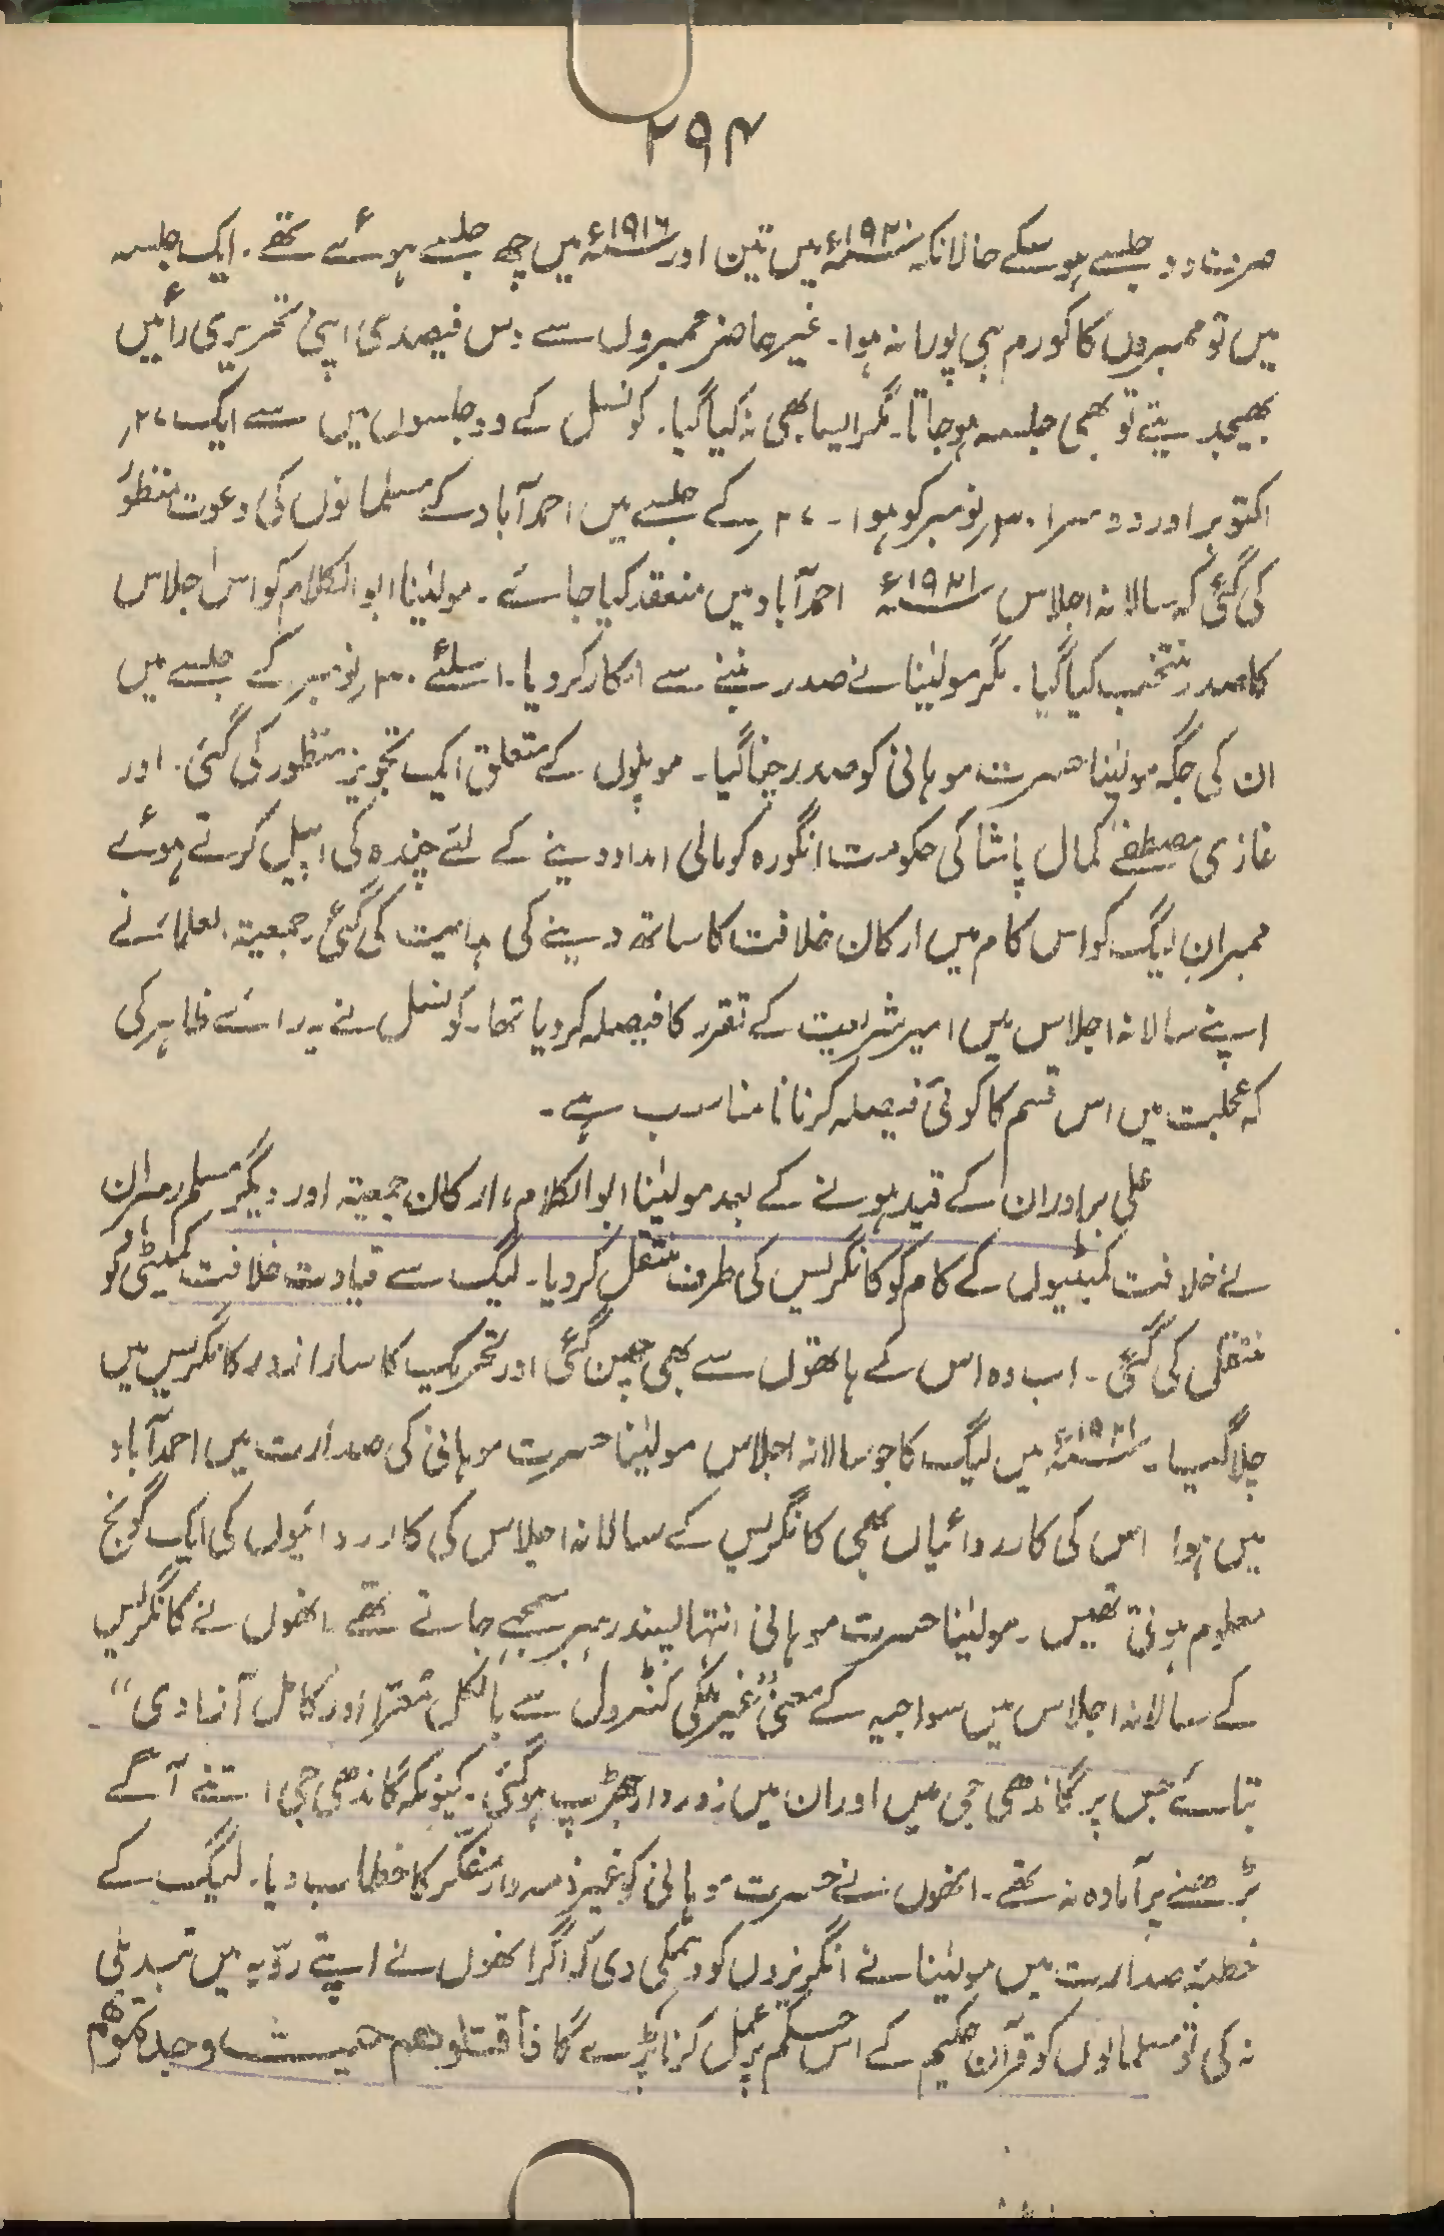 ۲۹۴
صرف دو جلسے ہوسکے حالانکہ ۱۹۲۰ء میں تین اور ۱۹۱۶ء میں چھ جلسے ہوئے تھے۔ ایک جلسہ
میں تو ممبروں کا کورم ہی پورا نہ ہوا۔ غیر حاضر ممبروں سے دس فیصدی اپنی تحریری رائیں
بھیجدیتے تو بھی جلسہ ہوجاتا۔ مگر ایسا بھی نہ کیا گیا۔ کونسل کے دو جلسوں میں سے ایک ۲۷ر
اکتوبر اور دوسرا ۳۰ر نومبر کو ہوا۔ ۲۷ر کے جلسے میں احمد آباد کے مسلمانوں کی دعوت منظور
کی گئی کہ سالانہ اجلاس ۱۹۲۱ء احمد آباد میں منعقد کیا جائے۔ مولیٰنا ابوالکلام کو اس اجلاس
کا صدر منتخب کیا گیا۔ مگر مولیٰنا نے صدر بننے سے انکار کردیا۔ اسلئے ۳۰ر نومبر کے جلسے میں
ان کی جگہ مولیٰنا حسرت موہانی کو صدر چنا گیا۔ موپلوں کے متعلق ایک تجویز منظور کی گئی۔ اور
غازی مصطفےٰ کمال پاشا کی حکومت انگورہ کو مالی امداد دینے کے لئے چندہ کی اپیل کرتے ہوئے
ممبرانِ لیگ کو اس کام میں ارکان خلافت کا ساتھ دینے کی ہدایت کی گئی۔ جمعیتہ العلماء نے
اپنے سالانہ اجلاس میں امیر شریعت کے تقرر کا فیصلہ کردیا تھا۔ کونسل نے یہ رائے ظاہر کی
کہ عجلت میں اس قسم کا کوئی فیصلہ کرنا نامناسب ہے۔
علی برادران کے قید ہونے کے بعد مولیٰنا ابوالکلام، ارکان جمعیتہ اور دیگر مسلم رہبران
نے خلافت کمیٹیوں کے کام کو کانگریس کی طرف منتقل کردیا۔ لیگ سے قیادت خلافت کمیٹی کو
منتقل کی گئی۔ اب وہ اس کے ہاتھوں سے بھی چھین گئی اور تحریک کا سارا زور کانگریس میں
چلا گیا۔ ۱۹۲۱ء میں لیگ کا جو سالانہ اجلاس مولیٰنا حسرت موہانی کی صدارت میں احمد آباد
میں ہوا اس کی کارروائیاں بھی کانگریس کے سالانہ اجلاس کی کارروائیوں کی ایک گونج
معلوم ہوتی تھیں۔ مولیٰنا حسرت موہانی انتہا پسند رہبر سمجھے جاتے تھے۔ انھوں نے کانگریس
کے سالانہ اجلاس میں سواجیہ کے معنیٰ "غیر ملکی کنٹرول سے بالکل مُعَرّا اور کامل آزادی"
بتائے جس پر گاندھی جی میں اور ان میں زوردار جھڑپ ہوگئی۔ کیونکہ گاندھی جی اتنے آگے
بڑھنے پر آمادہ نہ تھے۔ انھوں نے حسرت موہانی کو غیر ذمہ دار مفکّر کا خطاب دیا۔ لیگ کے
خطبۂ صدارت میں مولیٰنا نے انگریزوں کو دھمکی دی کہ اگر انھوں نے اپنے رویّہ میں تبدیلی
نہ کی تو مسلمانوں کو قرآن حکیم کے اس حکم پر عمل کرنا پڑے گا فاقتلوھم حیث وجدتموھم